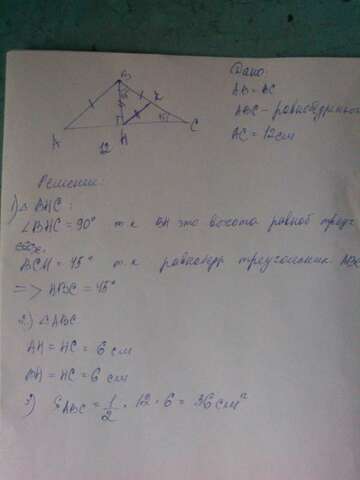 B
K
A
H
C
45
12
Дано:
AB = BC
ABC - равнобедренный
AC = 12 см
Решение:
1) △ BHC:
∠BHC = 90° т.к BH это высота равноб треуг.
BCH = 45° т.к равнобедр треугольник ABC
=> HBC = 45°
2) △ABC
AH = HC = 6 см
BH = HC = 6 см
3) S ABC = 1/2 · 12 · 6 = 36 см²